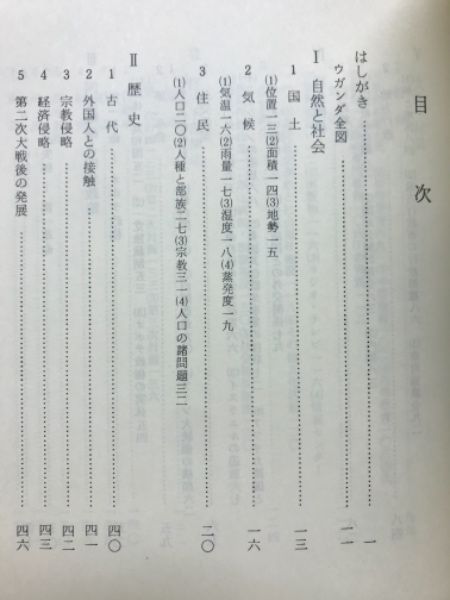 目次
はしがき……………………一
ウガンダ全図……………………一一
Ⅰ 自然と社会
1 国土……………………一三
(1)位置一三(2)面積一四(3)地勢一五
2 気候……………………一六
(1)気温一六(2)雨量一七(3)湿度一八(4)蒸発度一九
3 住民……………………二〇
(1)人口二〇(2)人種と部族二七(3)宗教三一(4)人口の諸問題三二
Ⅱ 歴史
1 古代……………………四〇
2 外国人との接触……………………四一
3 宗教侵略……………………四二
4 経済侵略……………………四三
5 第二次大戦後の発展……………………四六